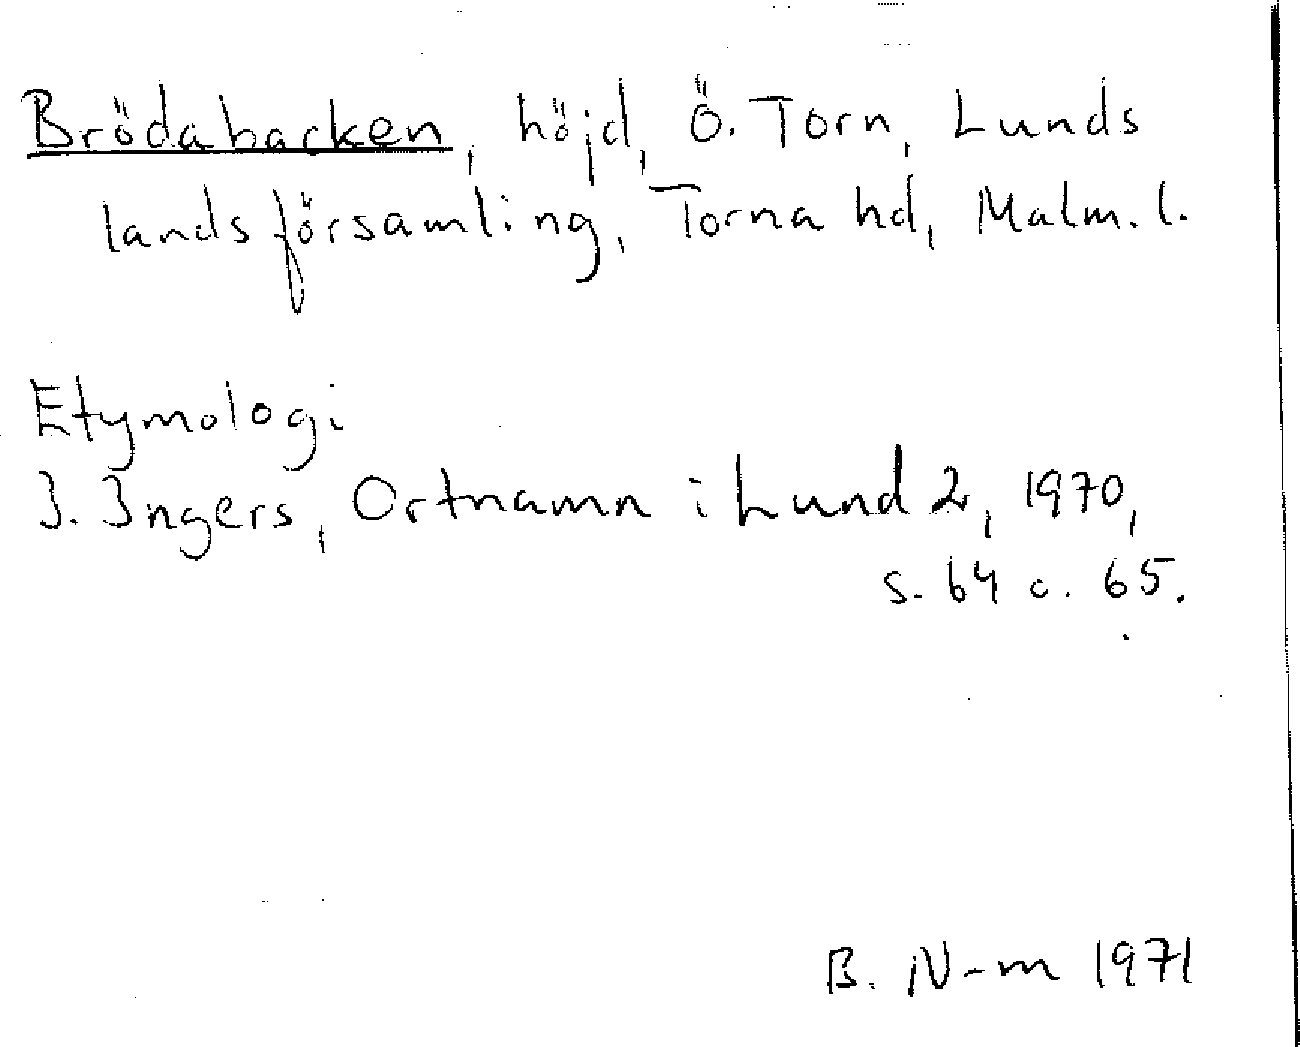 Brödabacken, höjd, Ö. Torn, Lunds
landsförsamling, Torna hd, Malm. l.
Etymologi
I. Ingers, Ortnamn i Lund 2, 1970,
s. 64 o. 65.
B. N-m 1971